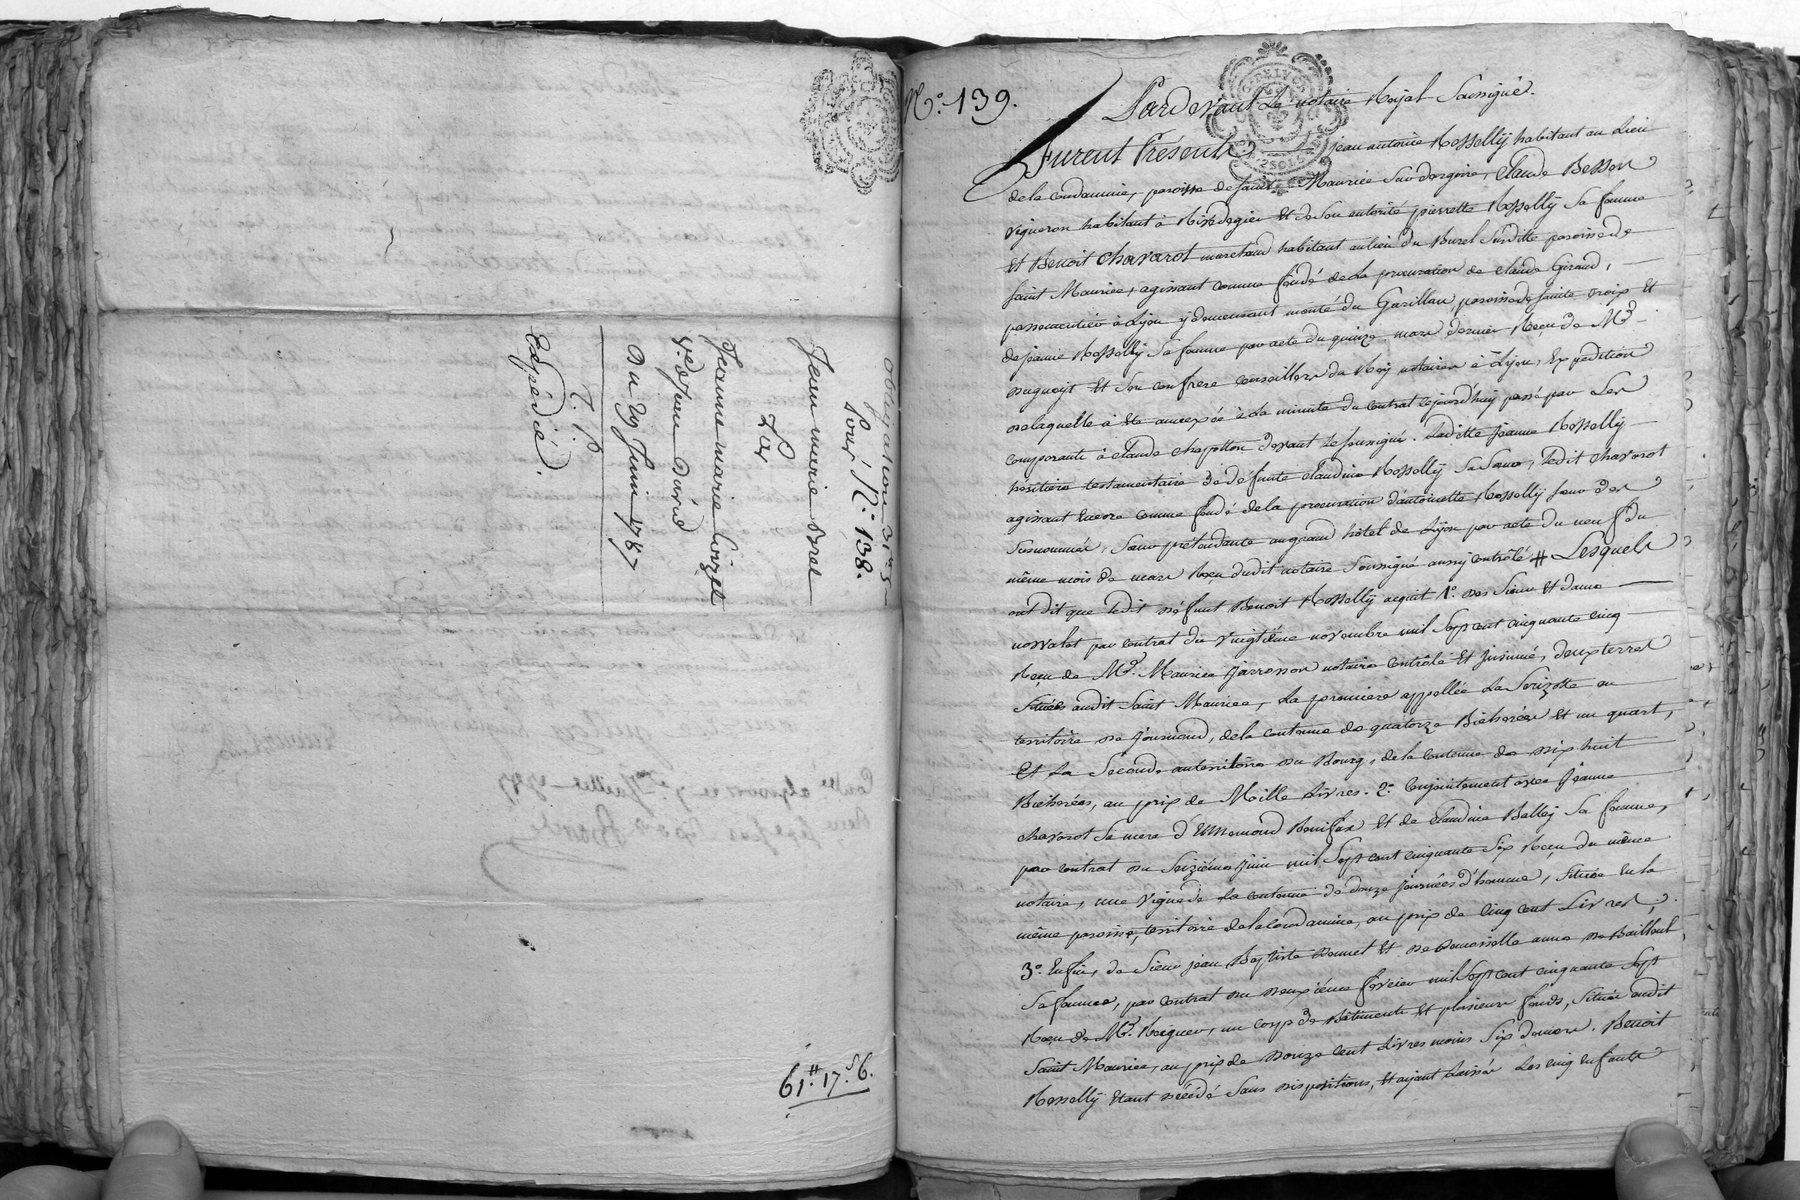 obligation 31##5s
Pour N.º 138.
Jean marie Brel
Par
Jeanne marie Poizet
V.e d'yven Durud
Du 29 Juin 1787
T. P.
Expédié.
61.# 17.s 6.
N.º 139.
Pardevant Le notaire Royal Soussigné.
Furent Présents jean antoine Rosselly habitant au Lieu
de la Condamine, paroisse de saint Maurice sur dargoire, Claude Besson
vigneron habitant à Rivedegier Et de son autorité pierrette Rosselly Sa femme
Et Benoit Chavarot marchand habitant au lieu du Burel Susditte paroisse de
saint Maurice, agissant comme fondé de La procuration de Claude Giraud,
passementier à Lyon y demeurant montée du Garillan, paroisse de sainte Croix Et
de jeanne Rosselly Sa femme par acte du quinze mars dernier Reçu de M.e
Et Son confrere Conseillers du Roy notaires à Lyon, Expedition
De laquelle à Eté annexée à La minute du contrat cejourd'huy passé par Les
comparants à Claude Chapollon devant le soussigné. Laditte jeanne Rosselly
héritiere testamentaire de défunte Claudine Rosselly Sa Sœur, ledit Chavarot
agissant Encore comme fondé de la procuration d'antoinette Rosselly sœur des
Susnommés, Sœur prétendante au grand hôtel de Lyon par acte du neuf du
même mois de mars Reçu dudit notaire Soussigné aussy contrôlé # Lesquels
ont dit que ledit défunt Benoit Rosselly acquit 1.º des Sieur Et dame
novalet par contrat du vingtième novembre mil Sept cent cinquante cinq
Reçu de M.e Maurice Jarrosson notaire Contrôlé Et Insinué, deux terres
Situées audit Saint Maurice, La premiere appellée La Serizolle au
territoire de Journoud, de la contenue de quatorze Bicherées Et un quart,
Et La Seconde au territoire du Bourg, de la contenue de dix huit
Bicherées, au prix de Mille Livres. 2.º Conjointement avec Jeanne
Chavarot Sa mere d'Ennemond Bonifax Et de Claudine Balley Sa femme,
par contrat du Seizième Juin mil Sept cent cinquante Six Reçu du même
notaire, une vigne de La contenue de douze journées d'homme, Située En la
même paroisse, territoire de la Condamine, au prix de Cinq cent Livres;
3.º Enfin, de Sieur jean Baptiste Donnet Et De Demoiselle anne De Baillout
Sa femme, par contrat du Deuxième février mil Sept cent cinquante Sept
Reçu de M.e Roquer, un corps de Bâtiments Et plusieurs fonds, Situés audit
Saint Maurice, au prix de Douze Cent Livres moins Six deniers. Benoit
Rosselly Etant Décédé Sans Dispositions, Et ayant Laissé Les cinq enfants